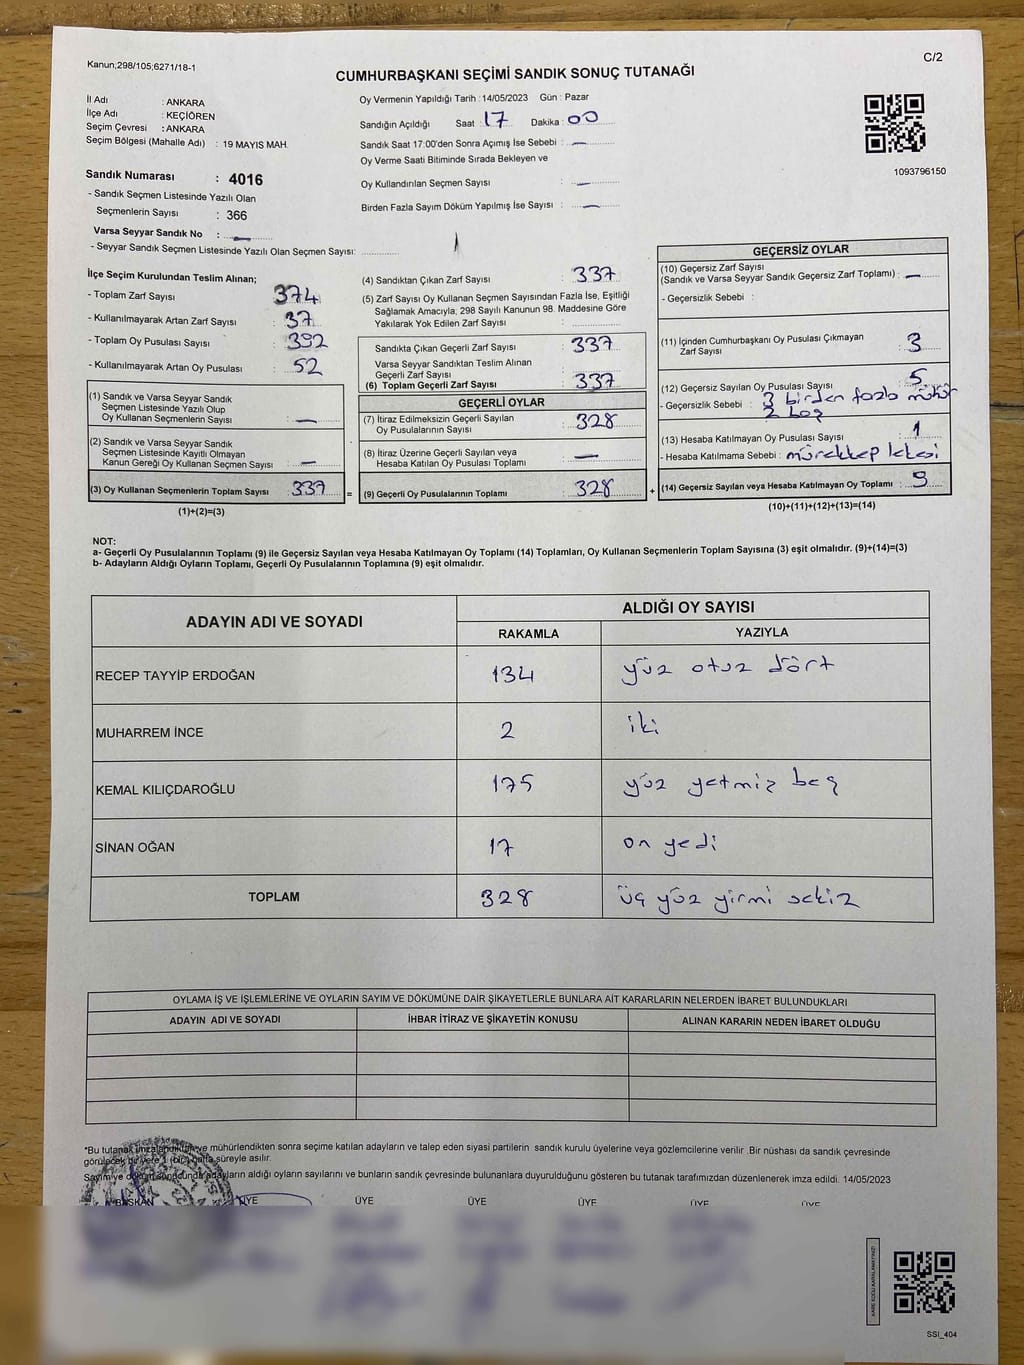 Kanun;298/105;6271/18-1
C/2
CUMHURBAŞKANI SEÇİMİ SANDIK SONUÇ TUTANAĞI
İl Adı : ANKARA
İlçe Adı : KEÇİÖREN
Seçim Çevresi : ANKARA
Seçim Bölgesi (Mahalle Adı) : 19 MAYIS MAH.
Sandık Numarası : 4016
- Sandık Seçmen Listesinde Yazılı Olan
Seçmenlerin Sayısı : 366
Varsa Seyyar Sandık No : —
- Seyyar Sandık Seçmen Listesinde Yazılı Olan Seçmen Sayısı:
Oy Vermenin Yapıldığı Tarih : 14/05/2023 Gün : Pazar
Sandığın Açıldığı Saat : 17 Dakika : 00
Sandık Saat 17:00'den Sonra Açımış İse Sebebi : —
Oy Verme Saati Bitiminde Sırada Bekleyen ve
Oy Kullandırılan Seçmen Sayısı : —
Birden Fazla Sayım Döküm Yapılmış İse Sayısı : —
1093796150
İlçe Seçim Kurulundan Teslim Alınan;
- Toplam Zarf Sayısı : 374
- Kullanılmayarak Artan Zarf Sayısı : 37
- Toplam Oy Pusulası Sayısı : 392
- Kullanılmayarak Artan Oy Pusulası : 52
(1) Sandık ve Varsa Seyyar Sandık
Seçmen Listesinde Yazılı Olup
Oy Kullanan Seçmenlerin Sayısı : —
(2) Sandık ve Varsa Seyyar Sandık
Seçmen Listesinde Kayıtlı Olmayan
Kanun Gereği Oy Kullanan Seçmen Sayısı : —
(3) Oy Kullanan Seçmenlerin Toplam Sayısı : 337 =
(1)+(2)=(3)
(4) Sandıktan Çıkan Zarf Sayısı : 337
(5) Zarf Sayısı Oy Kullanan Seçmen Sayısından Fazla İse, Eşitliği
Sağlamak Amacıyla; 298 Sayılı Kanunun 98. Maddesine Göre
Yakılarak Yok Edilen Zarf Sayısı :
Sandıkta Çıkan Geçerli Zarf Sayısı : 337
Varsa Seyyar Sandıktan Teslim Alınan
Geçerli Zarf Sayısı :
(6) Toplam Geçerli Zarf Sayısı : 337
GEÇERLİ OYLAR
(7) İtiraz Edilmeksizin Geçerli Sayılan
Oy Pusulalarının Sayısı : 328
(8) İtiraz Üzerine Geçerli Sayılan veya
Hesaba Katılan Oy Pusulaları Toplamı : —
(9) Geçerli Oy Pusulalarının Toplamı : 328 +
GEÇERSİZ OYLAR
(10) Geçersiz Zarf Sayısı
(Sandık ve Varsa Seyyar Sandık Geçersiz Zarf Toplamı) : —
- Geçersizlik Sebebi :
(11) İçinden Cumhurbaşkanı Oy Pusulası Çıkmayan
Zarf Sayısı : 3
(12) Geçersiz Sayılan Oy Pusulası Sayısı : 5
- Geçersizlik Sebebi : 3 birden fazla mühür
2 boş
(13) Hesaba Katılmayan Oy Pusulası Sayısı : 1
- Hesaba Katılmama Sebebi : mürekkep lekesi
(14) Geçersiz Sayılan veya Hesaba Katılmayan Oy Toplamı : 9
(10)+(11)+(12)+(13)=(14)
NOT:
a- Geçerli Oy Pusulalarının Toplamı (9) ile Geçersiz Sayılan veya Hesaba Katılmayan Oy Toplamı (14) Toplamları, Oy Kullanan Seçmenlerin Toplam Sayısına (3) eşit olmalıdır. (9)+(14)=(3)
b- Adayların Aldığı Oyların Toplamı, Geçerli Oy Pusulalarının Toplamına (9) eşit olmalıdır.
ADAYIN ADI VE SOYADI ALDIĞI OY SAYISI
RAKAMLA YAZIYLA
RECEP TAYYİP ERDOĞAN 134 yüz otuz dört
MUHARREM İNCE 2 iki
KEMAL KILIÇDAROĞLU 175 yüz yetmiz beş
SİNAN OĞAN 17 on yedi
TOPLAM 328 üç yüz yirmi sekiz
OYLAMA İŞ VE İŞLEMLERİNE VE OYLARIN SAYIM VE DÖKÜMÜNE DAİR ŞİKAYETLERLE BUNLARA AİT KARARLARIN NELERDEN İBARET BULUNDUKLARI
ADAYIN ADI VE SOYADI İHBAR İTİRAZ VE ŞİKAYETİN KONUSU ALINAN KARARIN NEDEN İBARET OLDUĞU
*Bu tutanak imzalandıktan ve mühürlendikten sonra seçime katılan adayların ve talep eden siyasi partilerin sandık kurulu üyelerine veya gözlemcilerine verilir .Bir nüshası da sandık çevresinde
görülecek bir yere 1 (bir) hafta süreyle asılır.
Sayım ve döküm sonucunda adayların aldığı oyların sayılarını ve bunların sandık çevresinde bulunanlara duyurulduğunu gösteren bu tutanak tarafımızdan düzenlenerek imza edildi. 14/05/2023
BAŞKAN ÜYE ÜYE ÜYE ÜYE ÜYE ÜYE
SSI_404